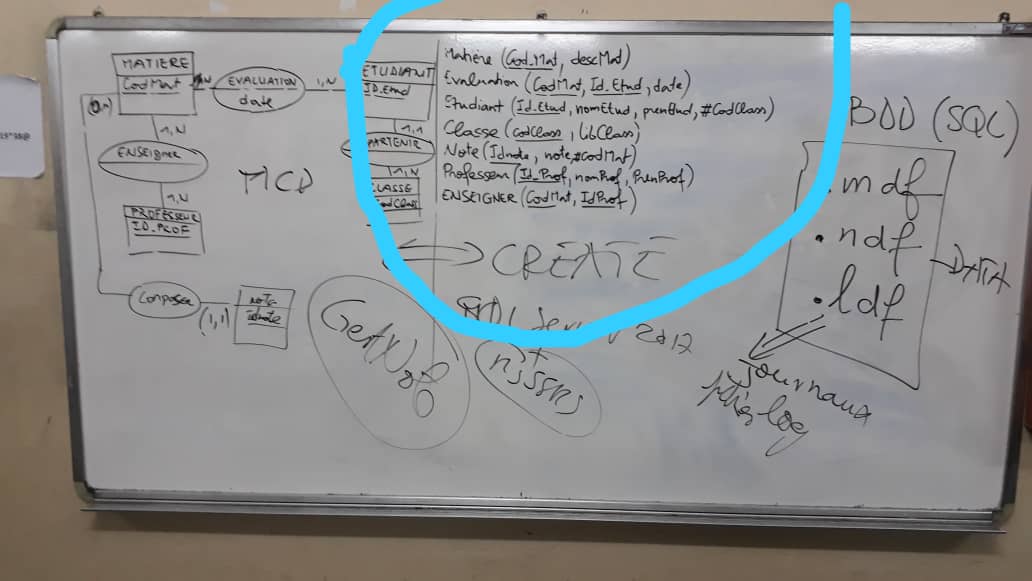 MATIERE
CodMat
1,N
EVALUATION
date
1,N
ETUDIANT
ID.Etud
(0,n)
1,N
ENSEIGNER
1,N
PROFESSEUR
ID_PROF
MCD
1,1
PARTENIR
1,N
CLASSE
CodClass
COMPOSER
(1,1)
Note
Idnote
Matière (Cod_Mat, descMat)
Evaluation (CodMat, Id_Etud, date)
Etudiant (Id_Etud, nomEtud, prenEtud, #CodClass)
Classe (codClass, libClass)
Note (Idnote, note, #codMat)
Professeur (Id_Prof, nomProf, PrenProf)
ENSEIGNER (CodMat, IdProf)
CREATE
2012
BDD (SQL)
.mdf
.ndf
.ldf
DATA
Journaux
log